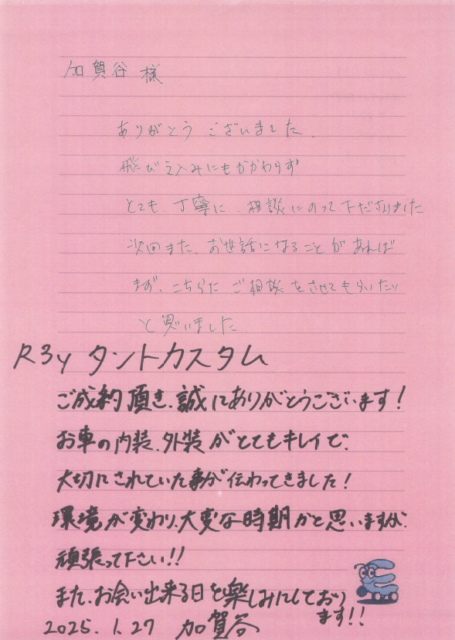 加賀谷 様
ありがとう ございました.
飛び込みにもかかわらず
とても、丁寧に、相談にのって下さいました
次回また、お世話になることがあれば
まず、こちらに ご相談をさせてもらいたい
と思いました
R3y タントカスタム
ご成約頂き、誠にありがとうございます!
お車の内装、外装がとてもキレイで、
大切にされていた事が伝わってきました!
環境が変わり、大変な時期かと思いますが、
頑張って下さい!!
また、お会い出来る日を楽しみにしており
ます!!
2025.1.27 加賀谷